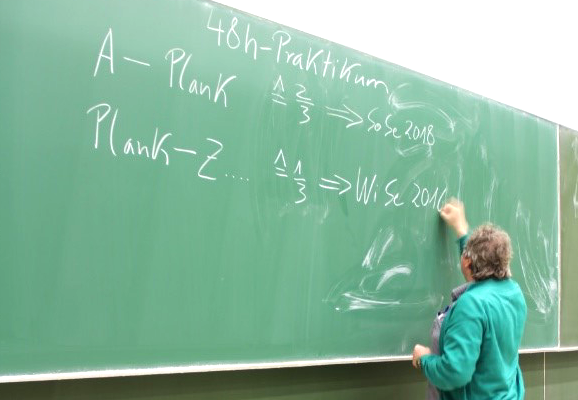 48h-Praktikum
A – Plank ≙ 2/3 ⇒ SoSe 2018
Plank-Z.... ≙ 1/3 ⇒ WiSe